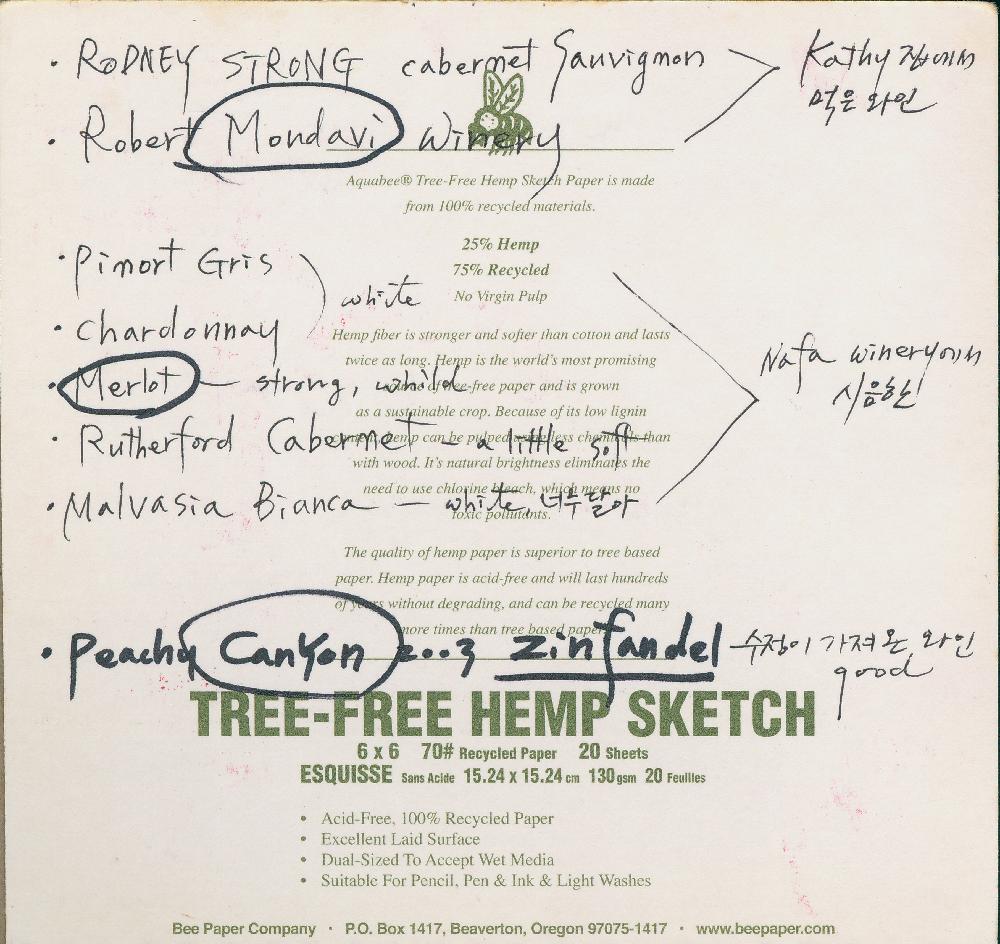 • RODNEY STRONG cabernet Sauvignon
Kathy 집에서
먹은 와인
• Robert Mondavi Winery
Aquabee® Tree-Free Hemp Sketch Paper is made
from 100% recycled materials.
25% Hemp
75% Recycled
No Virgin Pulp
• Pinort Gris
white
• Chardonnay
Hemp fiber is stronger and softer than cotton and lasts
twice as long. Hemp is the world's most promising
• Merlot — strong,
of tree-free paper and is grown
as a sustainable crop. Because of its low lignin
• Rutherford Cabernet – a little soft
hemp can be pulped using less chemicals than
with wood. It's natural brightness eliminates the
need to use chlorine bleach, which means no
• Malvasia Bianca — white, 너무 달아
toxic pollutants.
Nafa winery에서
시음한
The quality of hemp paper is superior to tree based
paper. Hemp paper is acid-free and will last hundreds
of years without degrading, and can be recycled many
more times than tree based paper.
• Peachy Canyon 2003 Zinfandel 수정이 가져온 와인
good
TREE-FREE HEMP SKETCH
6 x 6 70# Recycled Paper 20 Sheets
ESQUISSE Sans Acide 15.24 x 15.24 cm 130gsm 20 Feuilles
• Acid-Free, 100% Recycled Paper
• Excellent Laid Surface
• Dual-Sized To Accept Wet Media
• Suitable For Pencil, Pen & Ink & Light Washes
Bee Paper Company · P.O. Box 1417, Beaverton, Oregon 97075-1417 · www.beepaper.com